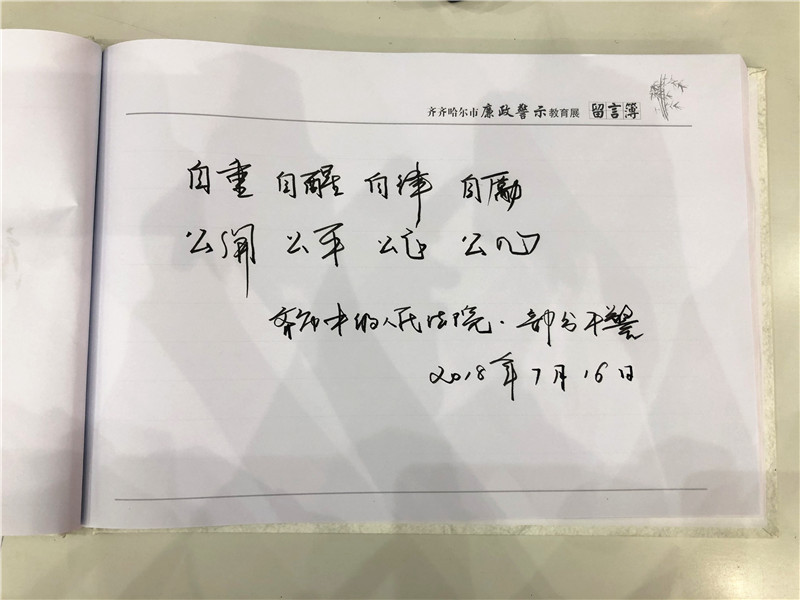 齐齐哈尔市廉政警示教育展 留言簿
自重 自醒 自律 自勵
公開 公平 公正 公心
齐市中级人民法院.部分干警
2018年7月16日